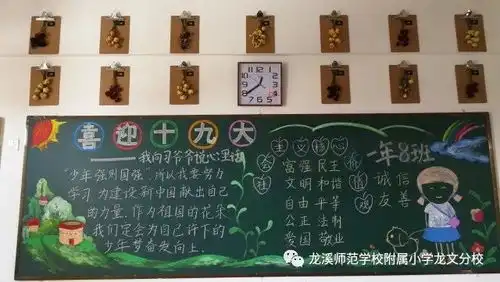 喜迎十九大
——我向习爷爷说心里话
"少年强则国强"所以我要努力
学习,为建设新中国献出自己
的力量,作为祖国的花朵
我们定会为自己许下的
少年梦奋发向上.
主义核心
富强 民主
文明 和谐
自由 平等
公正 法制
爱国 敬业
诚信
友善
一年8班
龙溪师范学校附属小学龙文分校